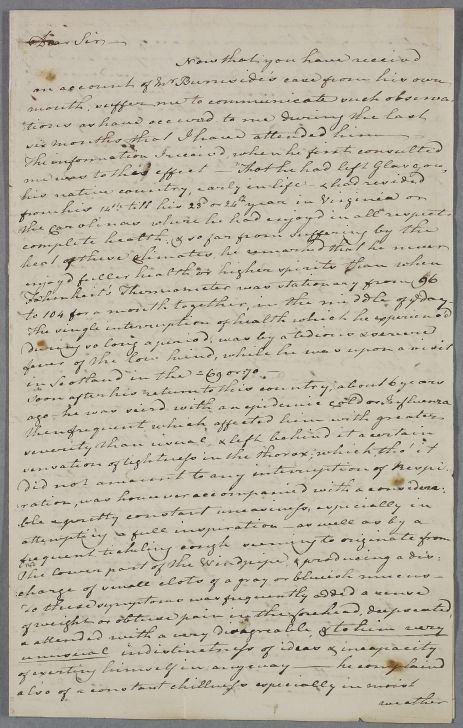 Dear Sir
Now that you have received
an account of Mr Burnside's case from his own
mouth, suffer me to communicate such observa-
tions as have occured to me during the last
six months that I have attended him —
The information I received, when he first consulted
me was to this effect — That he had left Glasgow,
his native country, early in life — & had resided
from his 14th till his 23d or 24th year in Virginea or
the Carolinas where he had enjoyd in all respects
complete health, & so far from suffering by the
heat of those Climates, he remarked that he never
enjoyd fuller health or higher spirits than when
Fahrenheit's Thermometer was stationary from 96
to 104 for a month together, in the middle of ye day —
The single interruption of health which he experienced
during so long a period, was by a tedious & severe
fever of the low kind, while he was upon a visit
in Scotland in the = 69 or 70. —
Soon after his return to this country, about 6 years
ago — he was seized with an epidemic cold or Influenza
then frequent which affected him with greater
severity than usual, & left behind it a certain
sensation of tightness in the thorax; which, tho' it
did not amount to any interruption of Respi-
ration, was however accompanied with a considera-
ble & pretty constant uneasiness, especially in
attempting a full inspiration — as well as by a
frequent tickling cough seeming to originate from
the lower part of the Windpipe, & producing a dis-
charge of small clots of a gray or bluish mucus —
To these symptoms was frequently added a sense
of weight or obtuse pain in the forehead, deep seated,
& attended with a very disagreable & to him very
unusual indistinctness of ideas & incapacity
of exerting himself in any way — he complaind
also of a constant chillness especially in moist
weather